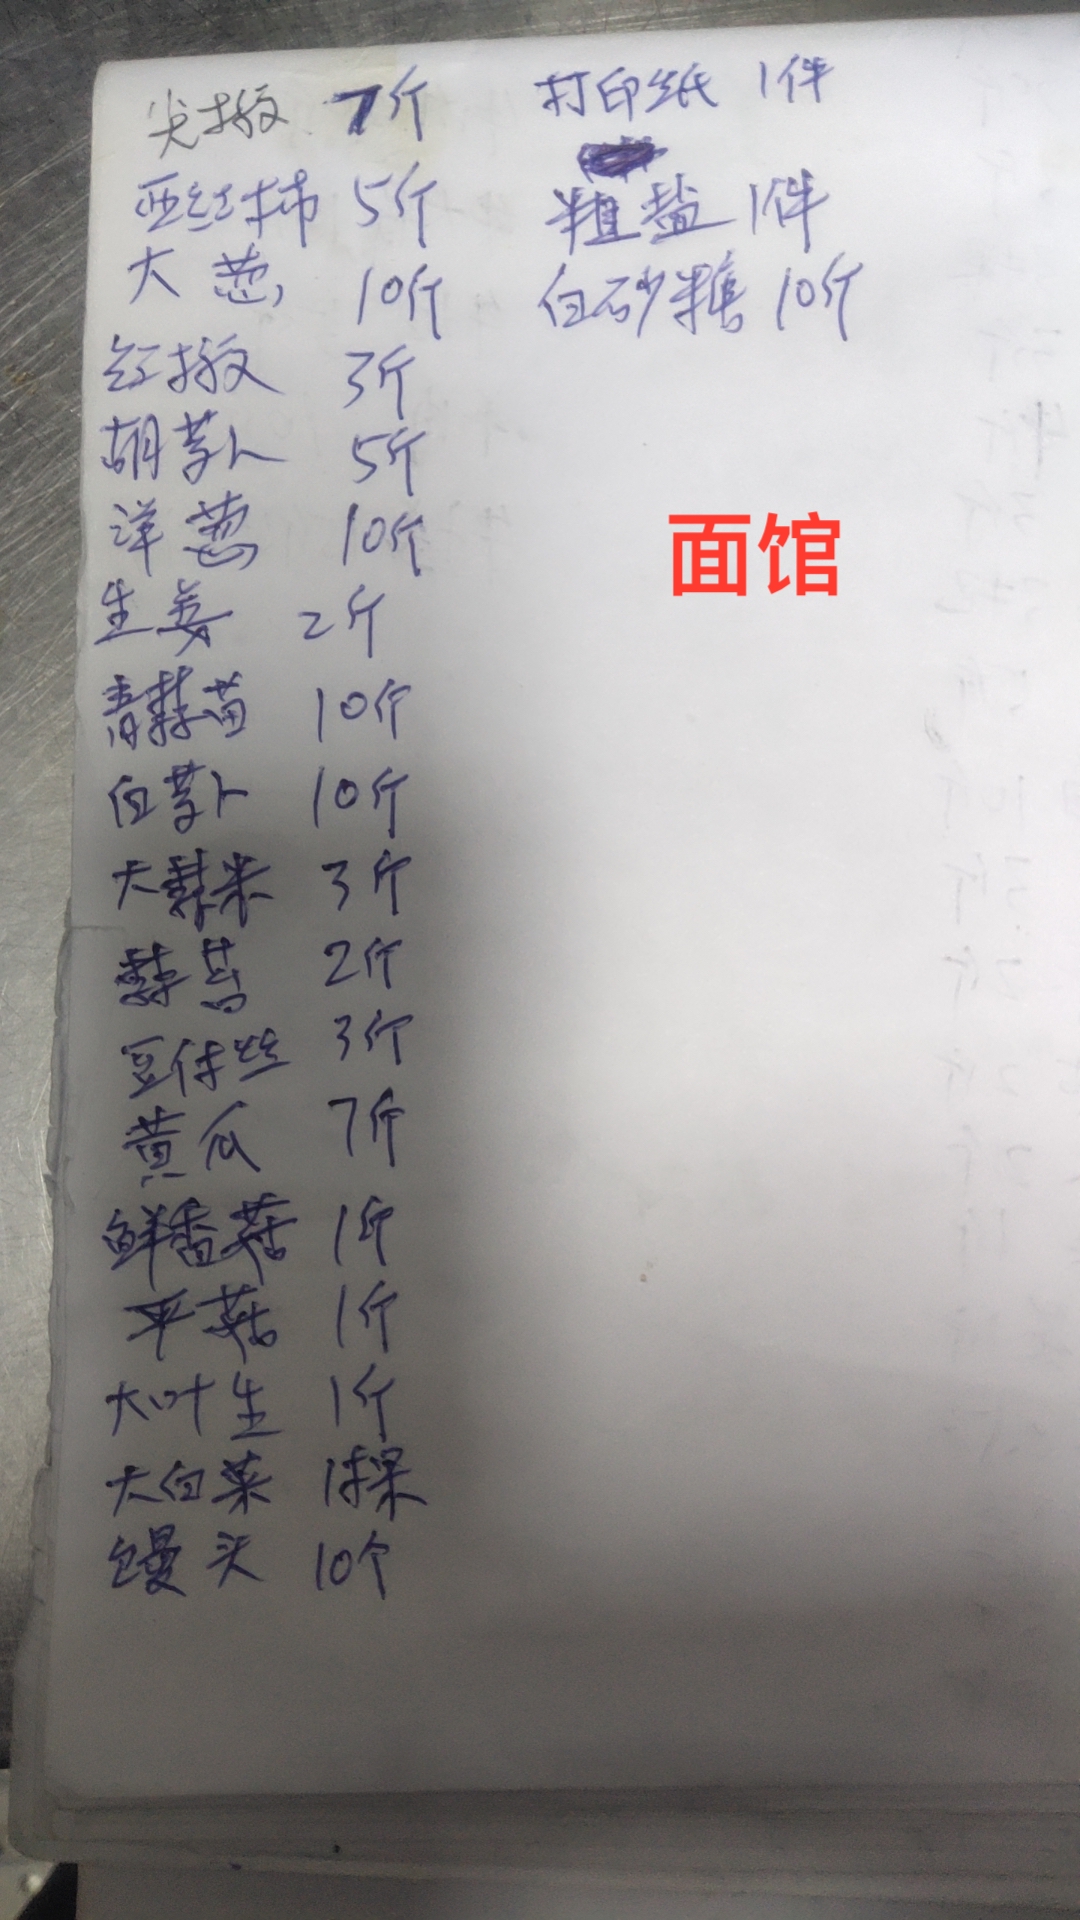 尖椒 7斤
西红柿 5斤
大葱 10斤
红椒 3斤
胡萝卜 5斤
洋葱 10斤
生姜 2斤
青蒜苗 10斤
白萝卜 10斤
大蒜米 3斤
蒜苔 2斤
豆付丝 3斤
黄瓜 7斤
鲜香菇 1斤
平菇 1斤
大叶生 1斤
大白菜 1棵
馒头 10个
打印纸 1件
粗盐 1件
白砂糖 10斤
面馆